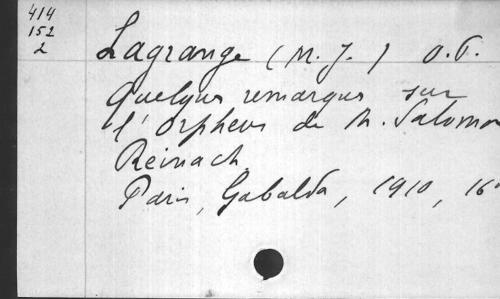 414
152
2
Lagrange (M. J.) O.P.
Quelques remarques sur
l'Orpheus de M. Salomon
Reinach
Paris, Gabalda, 1910, 16°